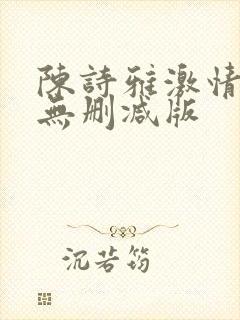 陳詩雅激情
無刪減版
沉若筠